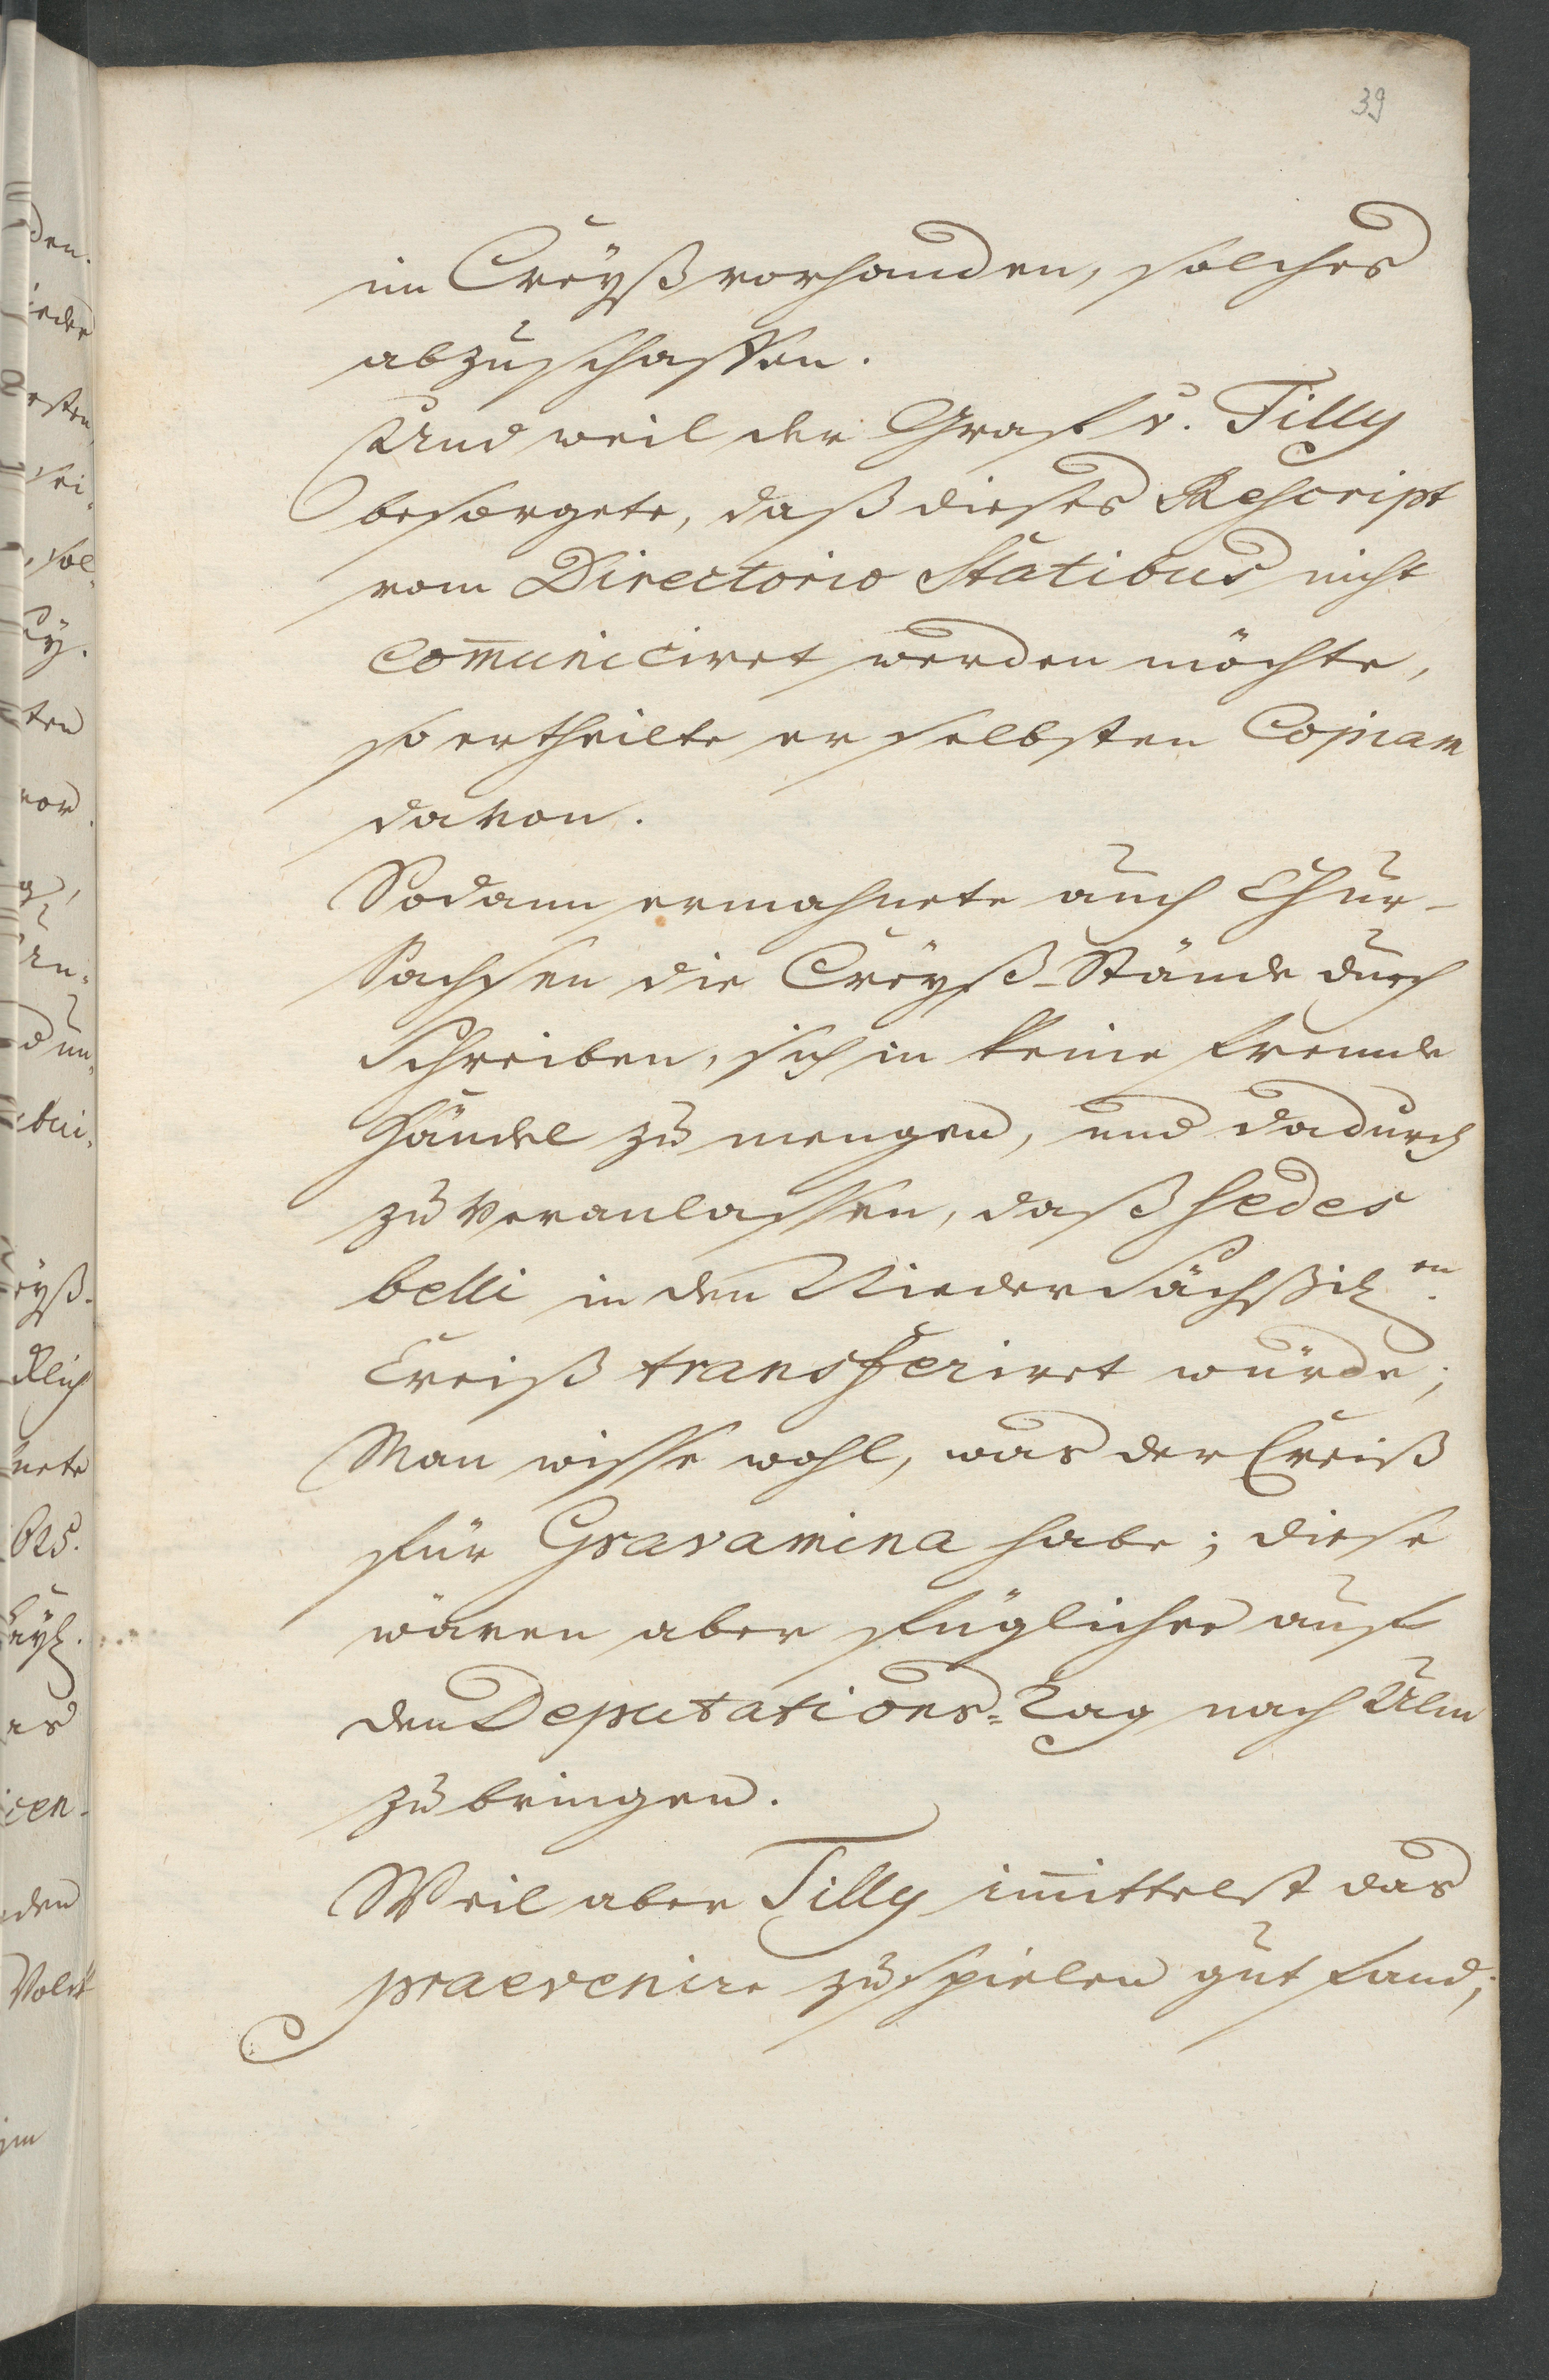 39
im Creyß vorhanden, solches
abzuschaffen.
Und weil der Graf v. Tilly
besorgete, daß dieses Rescript
vom Directorio Statibus nicht
com̄uniciret werden möchte,
so ertheilte er selbsten Copiam
davon.
Sodann ermahnete auch Chur-
Sachsen die Creyß-Stände durch
Schreiben, sich in keine fremde
Händel zu mengen, und dadurch
zu veranlassen, daß sedes
belli in den Niedersächßich.en
Creiß transferiret würde;
Man wisse wohl, was der Creiß
für Gravamina habe; diese
wären aber füglicher auf
den Deputations-Tag nach Ulm
zu bringen.
Weil aber Tilly im̄ittelst das
praevenire zu spielen gut fand;